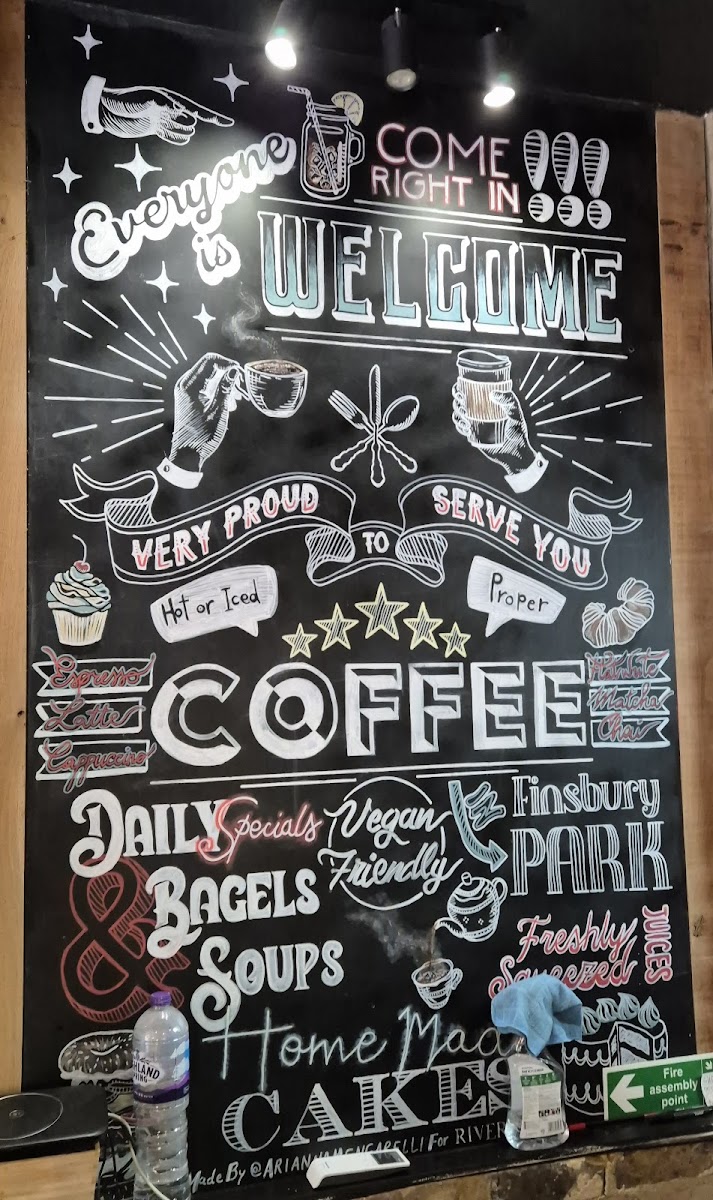 Everyone
is
COME
RIGHT IN !!!
WELCOME
VERY PROUD
TO
SERVE YOU
Hot or Iced
Proper
Espresso
Latte
Cappuccino
COFFEE
Matcha
Chai
DAILY Specials
Vegan
Friendly
IN
Finsbury
PARK
&
BAGELS
SOUPS
Freshly
Squeezed
JUICES
Home Mad
CAKES
Made By @ARIANNAMENGARELLI For RIVER
HLAND
Fire
assembly
point